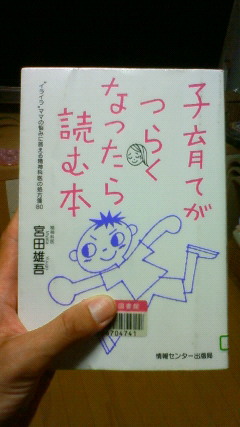 子育てが
つらく
なったら
読む本
"イライラ"ママの悩みに答える精神科医の処方箋80
精神科医
宮田雄吾
図書館
704741
情報センター出版局